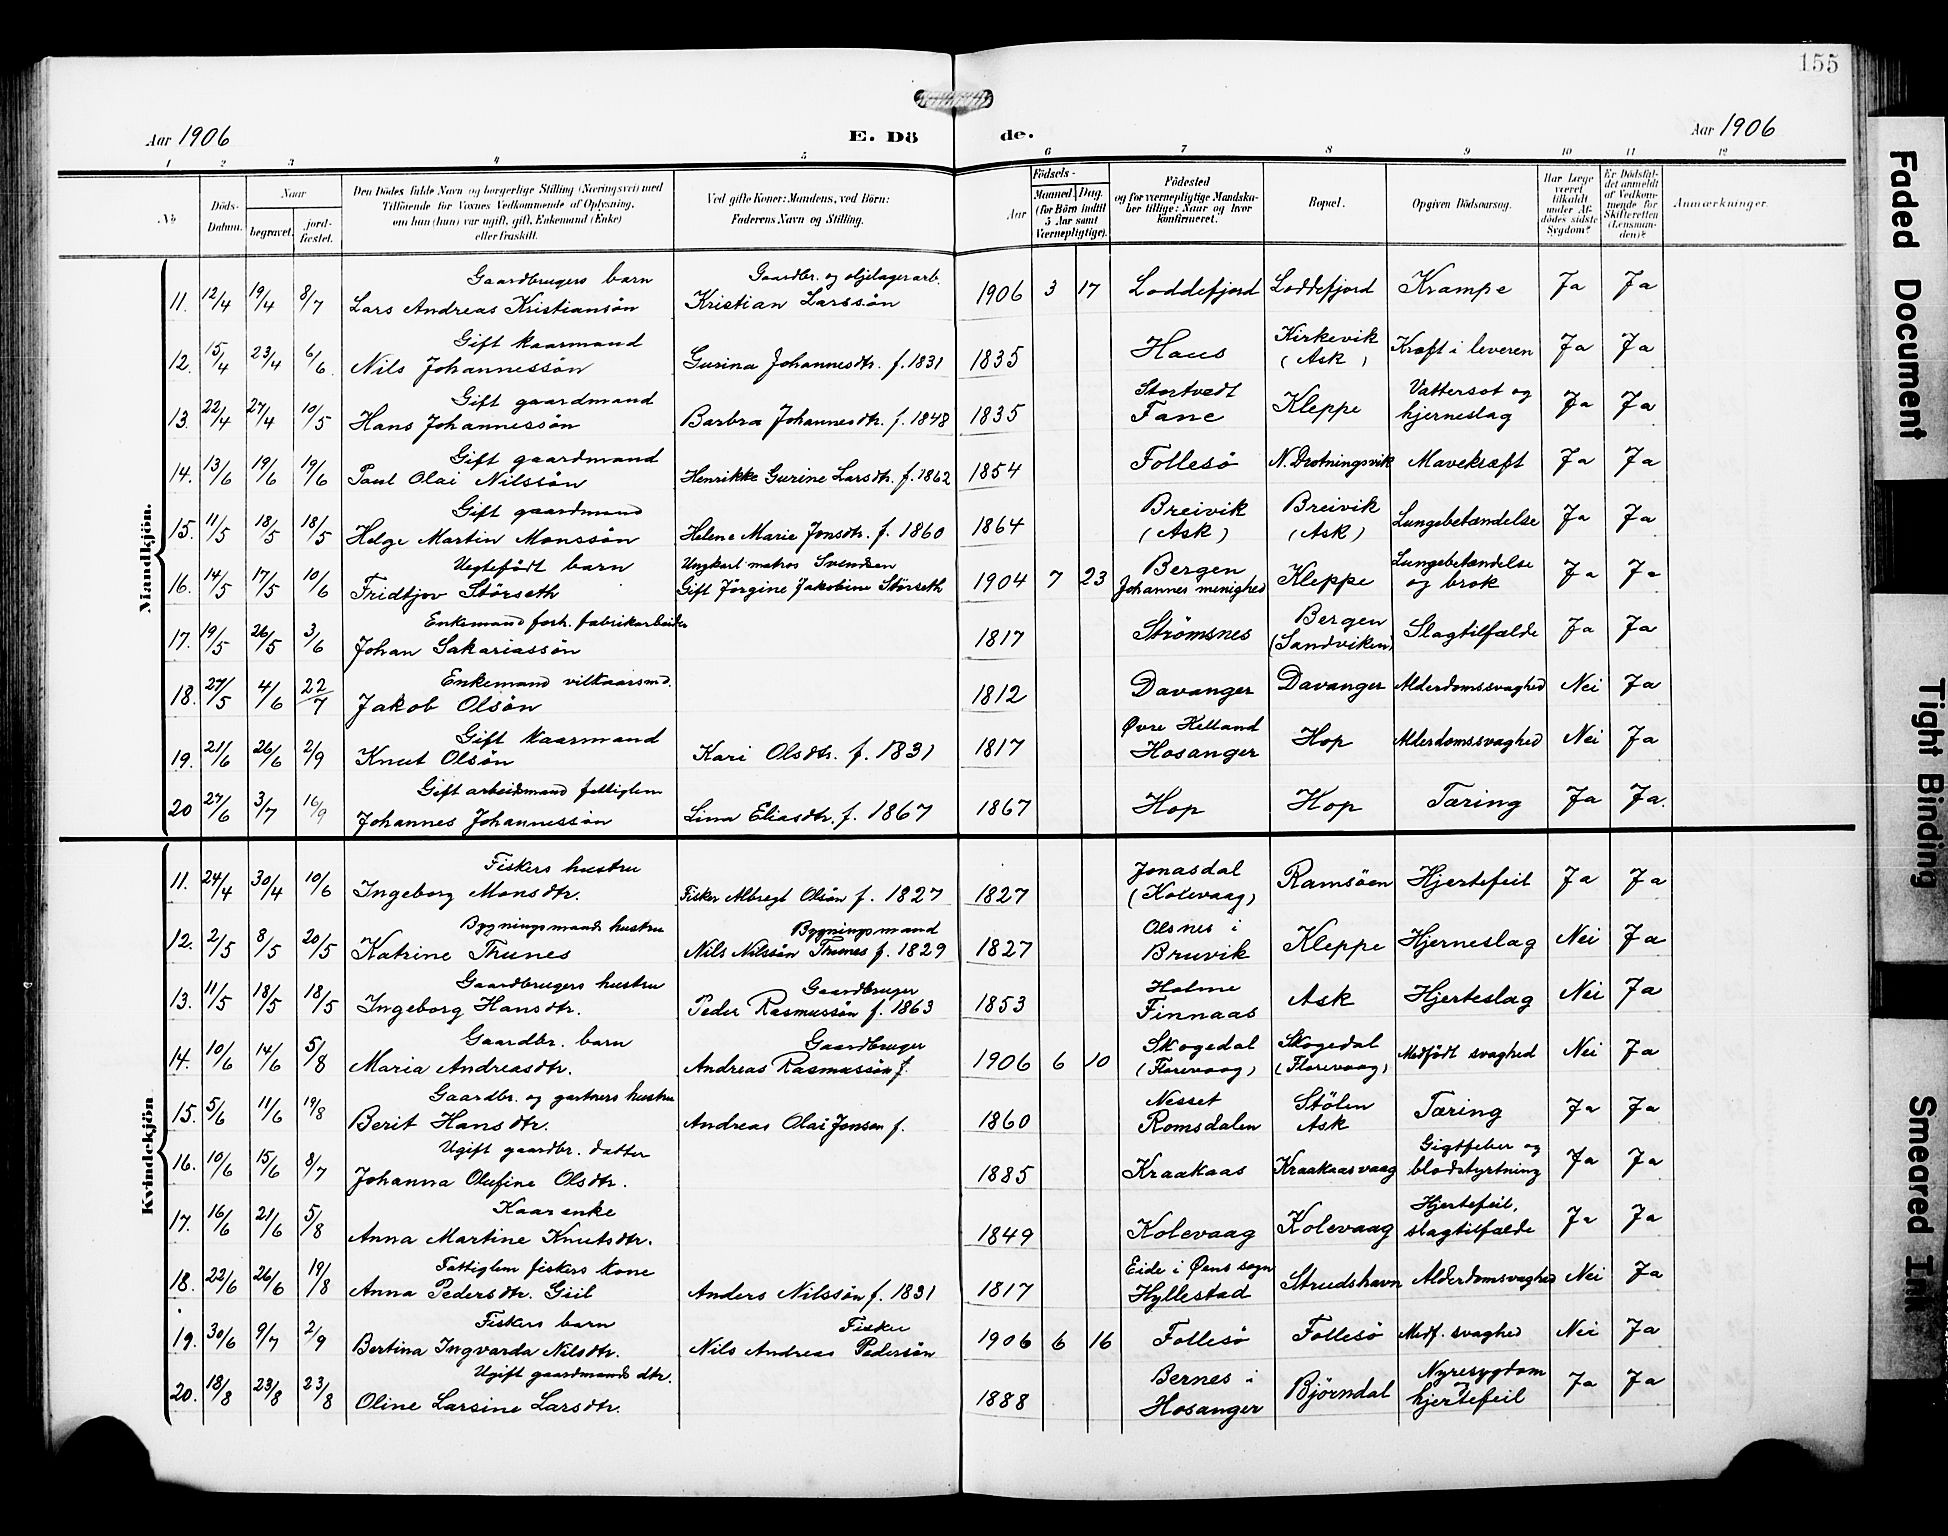 155
Aar 1906 E. Dö de. Aar 1906
1 2 3 4 5 6 7 8 9 10 11 12
No
Döds-Datum.
Naar
begravet.
jord-fæstet.
Den Dödes fulde Navn og borgerlige Stilling (Næringsvei) med
Tilföiende for Voxnes Vedkommende af Oplysning,
om han (hun) var ugift, gift, Enkemand (Enke)
eller fraskilt.
Ved gifte Koner: Mandens, ved Börn:
Faderens Navn og Stilling.
Födsels-
Aar
Maaned Dag.
(for Börn indtil
5 Aar samt
Værnepligtige).
Födested
og for værnepligtige Mandska-
ber tillige: Naar og hvor
konfirmeret.
Bopæl.
Opgiven Dödsaarsag.
Har Læge
været
tilkaldt
under Af-
dödes sidste
Sygdom?
Er Dödsfal-
det anmeldt
af Vedkom-
mende for
Skifteretten
(Lensman-
den)?
Anmærkninger.
Mandkjön.
Gaardbrugers barn Gaardbr. og oljelagerarb.
11. 12/4 19/4 8/7 Lars Andreas Kristiansön Kristian Larssön 1906 3 17 Loddefjord Loddefjord Krampe Ja Ja
Gift kaarmand Kirkevik
12. 15/4 23/4 6/6 Nils Johannessön Gurina Johannesdtr. f. 1831 1835 Haus (Ask) Kræft i leveren Ja Ja
Gift gaardmand Stortvedt Vattersot og
13. 22/4 27/4 10/5 Hans Johannessön Barbra Johannesdtr. f. 1848 1835 Fane Kleppe hjerneslag Ja Ja
Gift gaardmand
14. 13/6 19/6 19/6 Paul Olai Nilssön Henrikke Gurine Larsdtr. f. 1862 1854 Follesö N. Drotningsvik Mavekræft Ja Ja
Gift gaardmand Breivik Breivik
15. 11/5 18/5 18/5 Helge Martin Monssön Helene Marie Jonsdtr. f. 1860 1864 (Ask) (Ask) Lungebetændelse Ja Ja
Uegtefödt barn Ungkarl matros Svendsen Bergen Lungebetændelse
16. 14/5 17/5 10/6 Fridtjov Störseth Gift Jörgine Jakobine Störseth 1904 7 23 Johannes menighed Kleppe og brok Ja Ja
Enkemand forh. fabrikarbeider Bergen
17. 19/5 26/5 3/6 Johan Sakariassön 1817 Strömsnes (Sandviken) Slagtilfælde Ja Ja
Enkemand vilkaarsmd.
18. 27/5 4/6 22/7 Jakob Olsön 1812 Davanger Davanger Alderdomssvaghed Nei Ja
Gift kaarmand Øvre Helland
19. 21/6 26/6 2/9 Knut Olsön Kari Olsdtr. f. 1831 1817 Hosanger Hop Alderdomssvaghed Nei Ja
Gift arbeidsmand fattiglem
20 27/6 3/7 16/9 Johannes Johannessön Lina Eliasdtr. f. 1867 1867 Hop Hop Tæring Ja Ja.
Kvindekjön
Fiskers hustru Jonasdal
11. 24/4 30/4 10/6 Ingeborg Monsdtr. Fisker Albregt Olsön f. 1827 1827 (Kolevaag) Ramsöen Hjertefeil Ja Ja
Bygningsmands hustru Bygningsmand Olsnes i
12. 2/5 8/5 20/5 Katrine Thunes Nils Nilssön Thunes f. 1829 1827 Bruvik Kleppe Hjerneslag Nei Ja
Gaardbrugers hustru Gaardbruger Holme
13. 11/5 18/5 18/5 Ingeborg Hansdtr. Peder Rasmussön f. 1863 1853 Finnaas Ask Hjerteslag Nei Ja
Gaardbr. barn Gaardbruger Skogedal Skogedal
14. 10/6 14/6 5/8 Maria Andreasdtr. Andreas Rasmussön f. 1906 6 10 (Florevaag) (Florevaag) Medfödt svaghed Nei Ja
Gaardbr. og gartners hustru Nesset Stölen
15. 5/6 11/6 19/8 Berit Hansdtr. Andreas Olai Jonsen f. 1860 Romsdalen Ask Tæring Ja Ja
Ugift gaardbr. datter Gigtfeber og
16. 10/6 15/6 8/7 Johanna Olufine Olsdtr. 1885 Kraakaas Kraakaasvaag blodstyrtning Ja Ja
Kaarenke Hjertefeil,
17. 16/6 21/6 5/8 Anna Martine Knutsdtr. 1849 Kolevaag Kolevaag slagtilfælde Ja Ja
Fattiglem fiskers kone Eide i Øens sogn
18. 22/6 26/6 19/8 Anna Pedersdtr. Giil Anders Nilssön f. 1831 1817 Hyllestad Strudshavn Alderdomsvaghed Nei Ja
Fiskers barn Fisker
19. 30/6 9/7 2/9 Bertina Ingvarda Nilsdtr. Nils Andreas Pedersön 1906 6 16 Follesö Follesö Medf. svaghed Nei Ja
Ugift gaardmands dtr. Bernes i Nyresygdom
20. 18/8 23/8 23/8 Oline Larsine Larsdtr. 1888 Hosanger Björndal og hjertefeil Ja Ja
Faded Document
Tight Binding
Smeared Ink